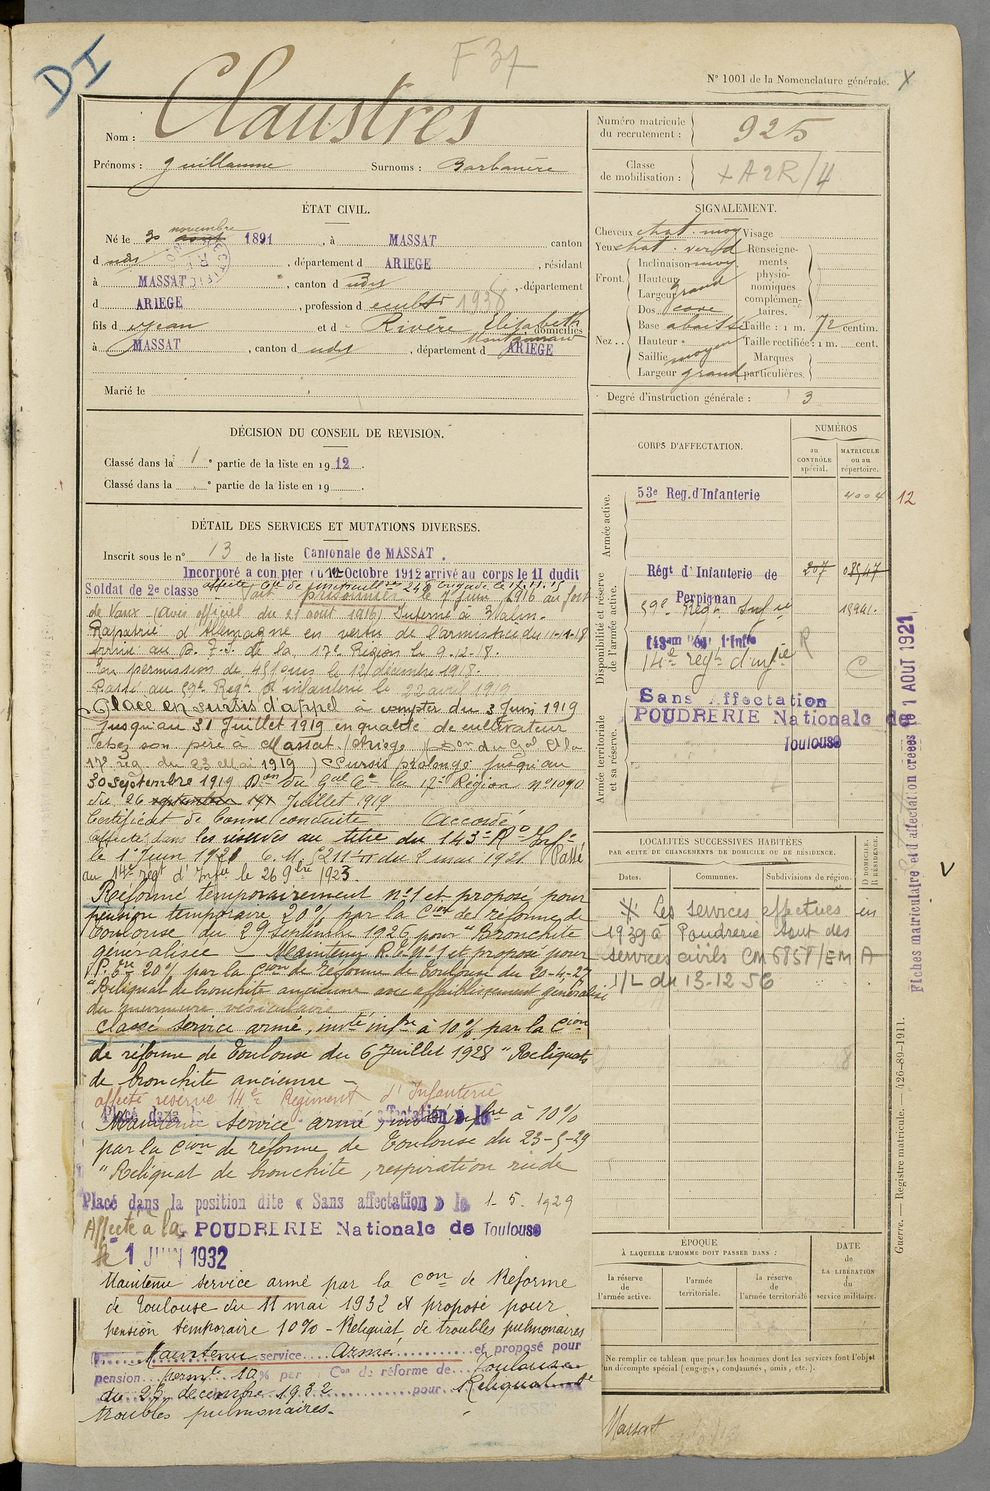 DI
F 37
N° 1001 de la Nomenclature générale. X
Nom : Claustres
Prénoms : Guillaume Surnoms : Barbanère
Numéro matricule du recrutement : 925
Classe de mobilisation : + A 2R/4
ÉTAT CIVIL.
novembre
Né le 30 août 1891, à MASSAT canton
d udis, département d ARIEGE, résidant
à MASSAT, canton d udis, département
d ARIEGE, profession d 1938
fils d Jean et d Rivère Elisabeth domiciliés
à MASSAT, canton d udis, département d ARIEGE
Marié le
SIGNALEMENT.
Cheveux chat. moy Visage
Yeux chat. verd Renseignements physionomiques complémentaires.
Front. Inclinaison moy
Hauteur
Largeur grand
Dos cave
Nez.. Base abaissée Taille : 1 m. 72 centim.
Hauteur " Taille rectifiée : 1 m. cent.
Saillie moyen Marques particulières.
Largeur grand
Degré d'instruction générale : 3
DÉCISION DU CONSEIL DE REVISION.
Classé dans la 1 e partie de la liste en 1912.
Classé dans la e partie de la liste en 19 .
DÉTAIL DES SERVICES ET MUTATIONS DIVERSES.
Inscrit sous le n° 13 de la liste Cantonale de MASSAT.
Incorporé à compter du 10 Octobre 1912 arrivé au corps le 11 dudit
Soldat de 2e classe
fait prisonnier le 7 juin 1916 au fort
de Vaux (avis officiel du 21 août 1916) Interné à
Rapatrié d'Allemagne en vertu de l'armistice du 11-11-18
arrivé au D. de la 17e Région le 9.12.18.
En permission de 45 jours le 12 décembre 1918.
Passé au 59e Régt d'infanterie le 22 avril 1919
Placé en sursis d'appel à compter du 3 Juin 1919
jusqu'au 31 Juillet 1919 en qualité de cultivateur
chez son père à Massat (Ariège) (Don du Gal Ct la
17e rég. du 23 Mai 1919) Sursis prolongé jusqu'au
30 septembre 1919 Don du Gal Ct la 17e Région n° 1090
du 26 septembre 191 Juillet 1919
Certificat de bonne conduite Accordé
affecté dans les réserves au titre du 143e R° Inf.
le 1 Juin 1921 C. M. du 2 mai 1921. Passé
au 14e régt d'Infrie le 26 9bre 1923.
Réformé temporairement n° 1 et proposé pour
pension temporaire 20% par la Cion de réforme de
Toulouse du 29 septembre 1926 pour "Bronchite
généralisée – Maintenu R. t. n° 1 et proposé pour
P. tre 20% par la Cion de réforme de Toulouse du 20-4-27
"Reliquat de bronchite ancienne avec affaiblissement généralisé
du murmure vésiculaire
Classé service armé, invté infre à 10% par la Cion
de réforme de Toulouse du 6 juillet 1928 "Reliquats
de bronchite ancienne –
affecté réserve 14e Régiment d'Infanterie
Maintenu service armé, invté infre à 10%
par la Cion de réforme de Toulouse du 23-5-29
"Reliquat de bronchite, respiration rude
Placé dans la position dite « Sans affectation » le 1-5-1929
Affecté à la POUDRERIE Nationale de Toulouse
le 1 JUIN 1932
Maintenu service armé par la Con de Réforme
de Toulouse du 11 mai 1932 et proposé pour
pension temporaire 10% - Reliquat de troubles pulmonaires
Maintenu service Armé et proposé pour
pension permte 10% par Con de réforme de Toulouse
du 23 décembre 1932 pour Reliquat de
troubles pulmonaires.
CORPS D'AFFECTATION.
NUMÉROS
au CONTRÔLE spécial. MATRICULE ou au répertoire.
Armée active.
53e Reg. d'Infanterie 4004 12
Disponibilité et réserve de l'armée active.
Régt d'Infanterie de Perpignan 207
59e Régt Infie
143em Rég. d'Infie
14e régt d'infie R C
Armée territoriale et sa réserve.
Sans Affectation
POUDRERIE Nationale de
Toulouse
Fiches matriculaire et d'affectation créées le 1 AOUT 1921
LOCALITÉS SUCCESSIVES HABITÉES
PAR SUITE DE CHANGEMENTS DE DOMICILE OU DE RÉSIDENCE.
Dates. Communes. Subdivisions de région. D. DOMICILE. R. RÉSIDENCE.
V
* Les services effectués en
1939 à Poudrerie sont des
services civils CM 5858/EMA
1/L du 13-12-56
ÉPOQUE
À LAQUELLE L'HOMME DOIT PASSER DANS :
la réserve de l'armée active. l'armée territoriale. la réserve de l'armée territoriale.
DATE DE LA LIBÉRATION du service militaire.
Ne remplir ce tableau que pour les hommes dont les services font l'objet
d'un décompte spécial (engagés, condamnés, omis, etc.).
Guerre. — Registre matricule. — 426-89-1911.
Massat